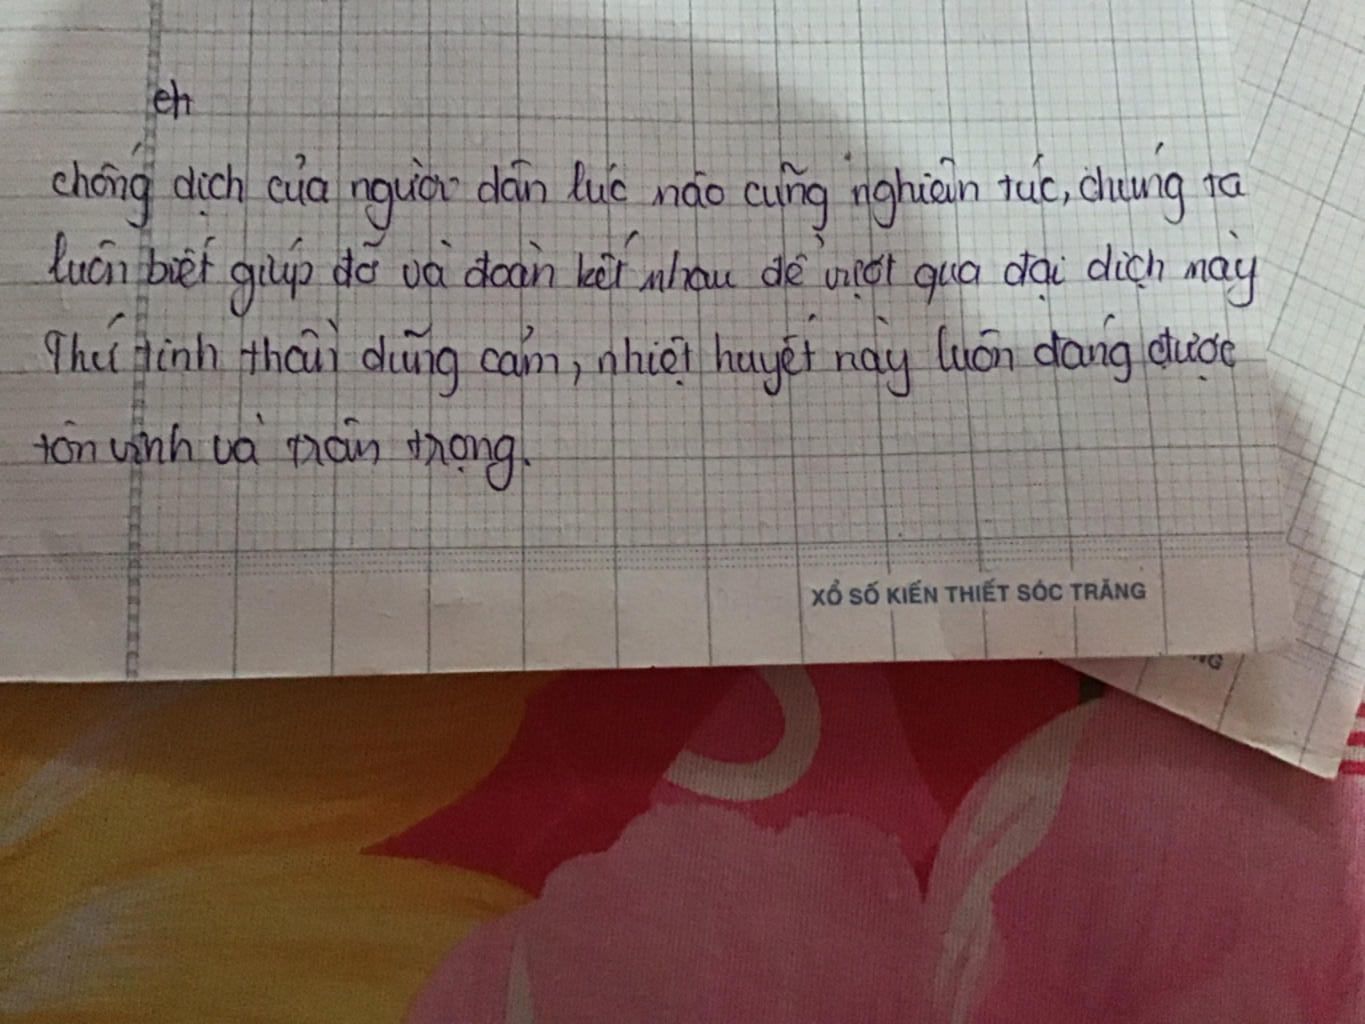 eh
chống dịch của người dân lúc nào cũng nghiên túc, chúng ta
luôn biết giúp đỡ và đoàn kết nhau để vượt qua đại dịch này
Thứ tinh thần dũng cảm, nhiệt huyết này luôn đáng được
tôn vinh và trân trọng.
XỔ SỐ KIẾN THIẾT SÓC TRĂNG
NG